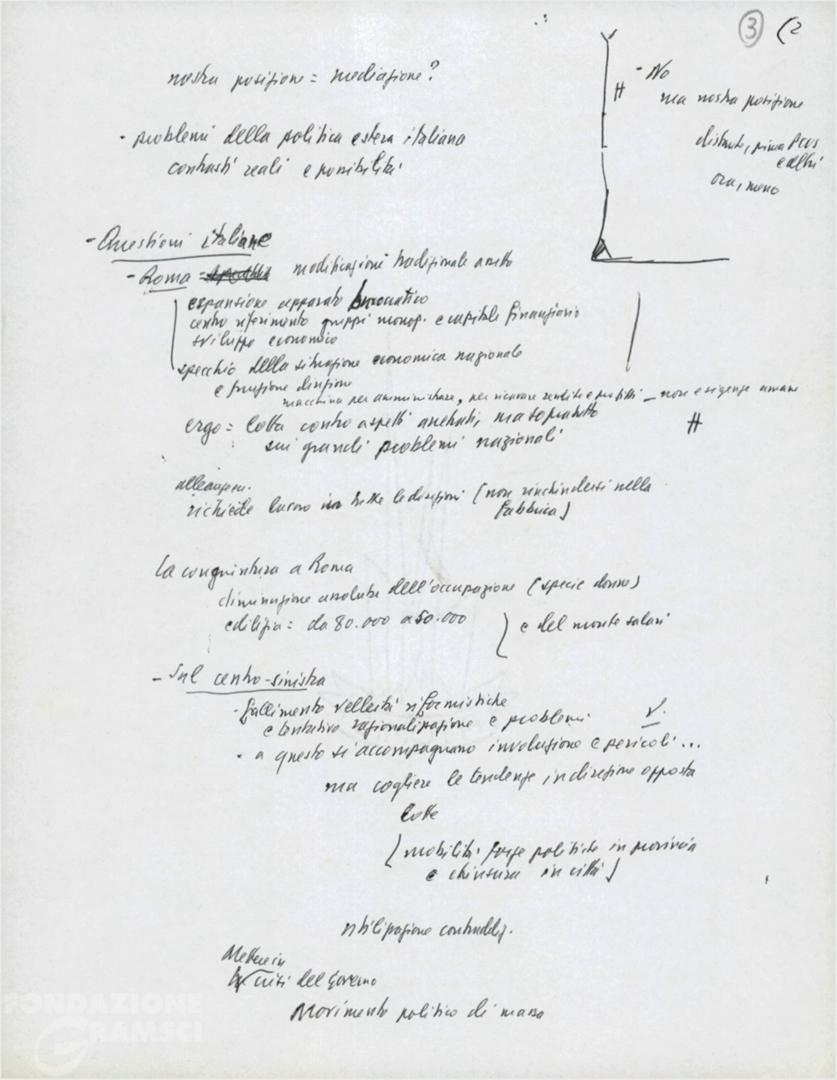 3 (2
nostra posizione = mediazione?
- problemi della politica estera italiana
contrasti reali e possibilità
H - No
ma nostra posizione
distante, prima PCUS
e altri
ora, meno
- Questioni italiane
- Roma = modificazioni tradizionale assetto
espansione apparato burocratico
centro riferimento gruppi monop. e capitale finanziario
sviluppo economico
specchio della situazione economica nazionale
e funzione direzione
macchina per amministrare, per ricavare rendite e profitti - non esigenze umane
ergo = lotta contro aspetti arretrati, ma soprattutto H
sui grandi problemi nazionali
alleanze.
richiede lavoro in tutte le direzioni (non rinchiudersi nella
fabbrica)
La congiuntura a Roma
diminuzione assoluta dell'occupazione (specie donne)
edilizia = da 80.000 a 50.000 ) e del monte salari
- Sul centro-sinistra
- fallimento velleità riformistiche
e tentativo razionalizzazione e problemi V.
- a questo si accompagnano involuzione e pericoli...
ma cogliere le tendenze in direzione opposta
lotte
(mobilità forze politiche in provincia
e chiusura in città)
stabilizzazione contraddiz.
Mettere in
crisi del Governo
Movimento politico di massa
FONDAZIONE
GRAMSCI